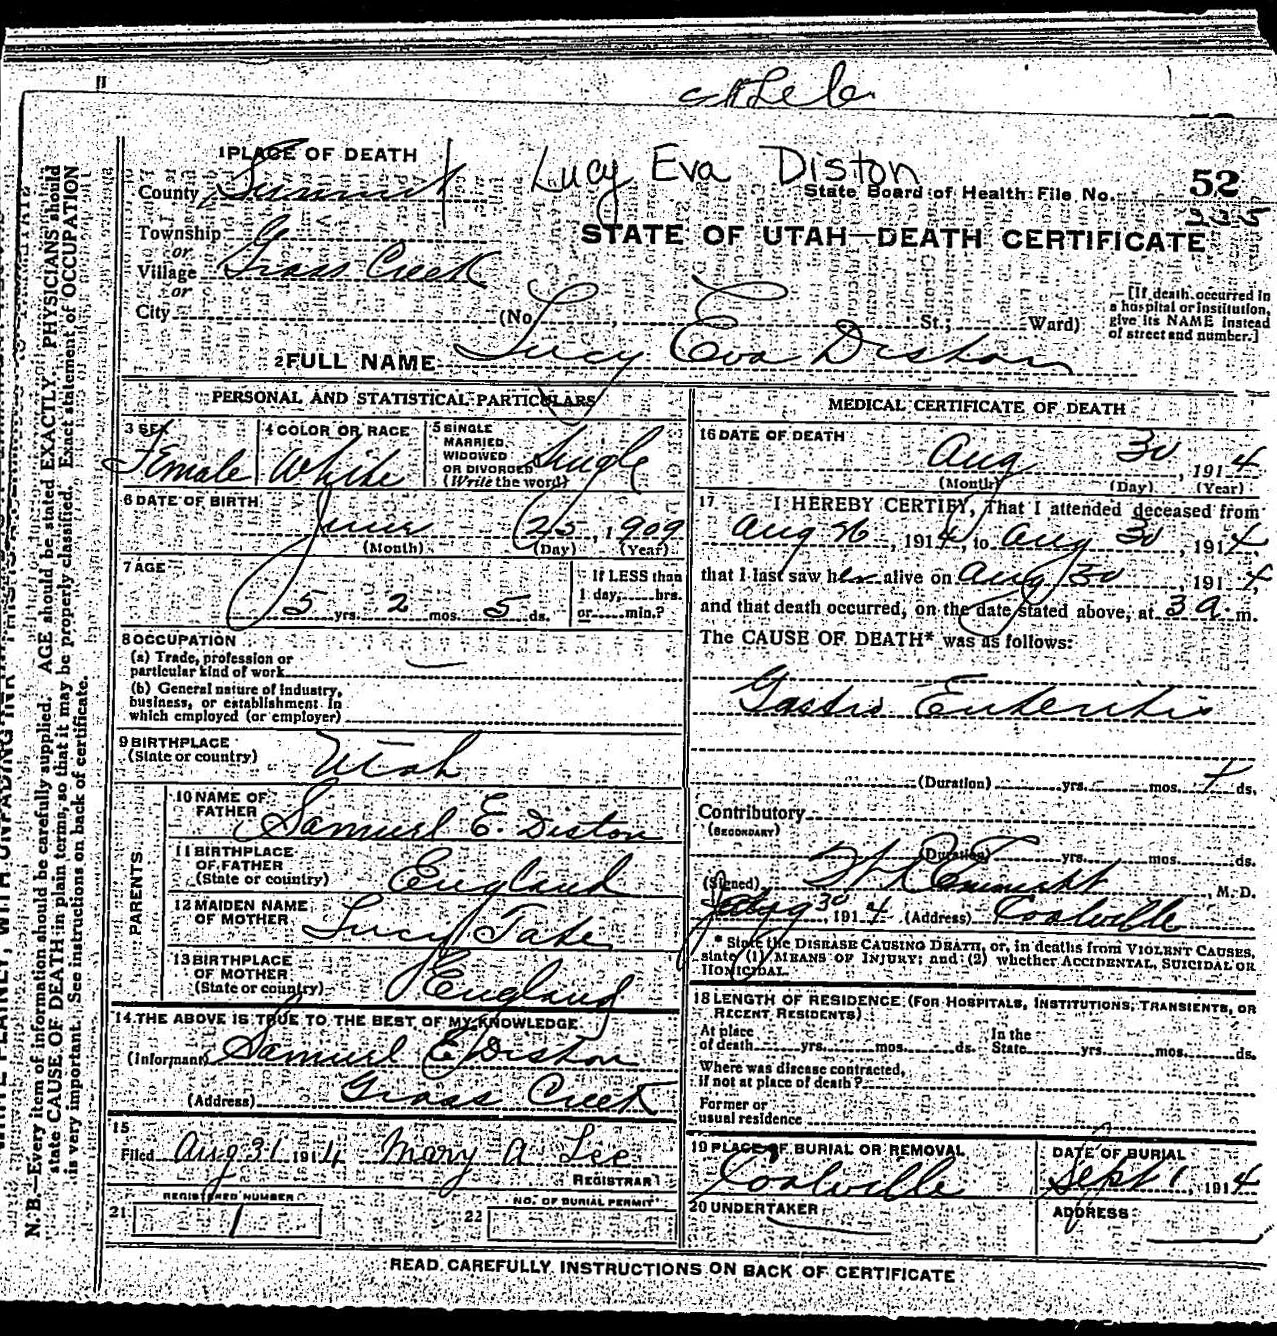 1 PLACE OF DEATH
Lucy Eva Diston
County Summit
State Board of Health File No. 52
225
Township
or
Village Grass Creek
or
City
STATE OF UTAH—DEATH CERTIFICATE
(No. , St.; Ward)
[If death occurred in a hospital or institution, give its NAME instead of street and number.]
2 FULL NAME Lucy Eva Diston
PERSONAL AND STATISTICAL PARTICULARS
3 SEX Female
4 COLOR OR RACE White
5 SINGLE MARRIED WIDOWED OR DIVORCED (Write the word) Single
6 DATE OF BIRTH June 25, 1909
(Month) (Day) (Year)
7 AGE 5 yrs. 2 mos. 5 ds.
If LESS than 1 day, hrs. or min.?
8 OCCUPATION
(a) Trade, profession or particular kind of work —
(b) General nature of industry, business, or establishment in which employed (or employer)
9 BIRTHPLACE (State or country) Utah
PARENTS
10 NAME OF FATHER Samuel E. Diston
11 BIRTHPLACE OF FATHER (State or country) England
12 MAIDEN NAME OF MOTHER Lucy Tate
13 BIRTHPLACE OF MOTHER (State or country) England
14 THE ABOVE IS TRUE TO THE BEST OF MY KNOWLEDGE
(Informant) Samuel E Diston
(Address) Grass Creek
15
Filed Aug 31 1914 Mary A Lee
REGISTRAR
REGISTERED NUMBER
21 1
NO. OF BURIAL PERMIT
22
MEDICAL CERTIFICATE OF DEATH
16 DATE OF DEATH
Aug 30, 1914
(Month) (Day) (Year)
17 I HEREBY CERTIFY, That I attended deceased from
Aug 26, 1914, to Aug 30, 1914,
that I last saw her alive on Aug 30 1914,
and that death occurred, on the date stated above, at 3 a m.
The CAUSE OF DEATH* was as follows:
Gastro Enteritis
(Duration) yrs. mos. ds.
Contributory
(SECONDARY)
(Duration) yrs. mos. ds.
(Signed) M. D.
30, 1914 (Address) Coalville
* State the DISEASE CAUSING DEATH, or, in deaths from VIOLENT CAUSES,
state (1) MEANS OF INJURY; and (2) whether ACCIDENTAL, SUICIDAL OR
HOMICIDAL.
18 LENGTH OF RESIDENCE (FOR HOSPITALS, INSTITUTIONS, TRANSIENTS, OR
RECENT RESIDENTS)
At place of death yrs. mos. ds. In the State yrs. mos. ds.
Where was disease contracted,
if not at place of death?
Former or
usual residence
19 PLACE OF BURIAL OR REMOVAL Coalville
DATE OF BURIAL Sept 1, 1914
20 UNDERTAKER
ADDRESS
READ CAREFULLY INSTRUCTIONS ON BACK OF CERTIFICATE
N. B.—Every item of information should be carefully supplied. AGE should be stated EXACTLY. PHYSICIANS should
state CAUSE OF DEATH in plain terms, so that it may be properly classified. Exact statement of OCCUPATION
is very important. See instructions on back of certificate.